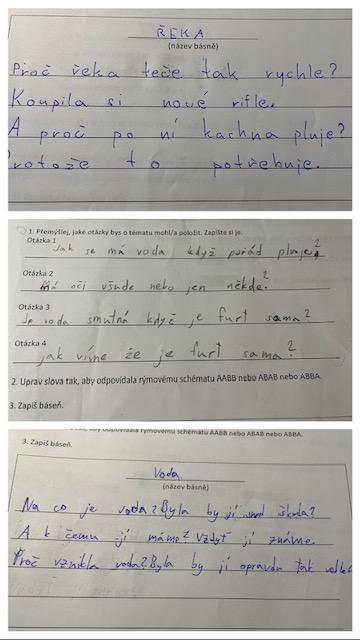 ŘEKA
(název básně)
Proč řeka teče tak rychle?
Koupila si nové rifle.
A proč po ní kachna pluje?
Protože to potřebuje.
1. Přemýšlej, jaké otázky bys o tématu mohl/a položit. Zapište si je.
Otázka 1
Jak se má voda když pořád pluje?
Otázka 2
Má oči všude nebo jen někde?
Otázka 3
Je voda smutná když je furt sama?
Otázka 4
jak víme že je furt sama?
2. Uprav slova tak, aby odpovídala rýmovému schématu AABB nebo ABAB nebo ABBA.
3. Zapiš báseň.
tak, aby odpovídala rýmovému schématu AABB nebo ABAB nebo ABBA.
3. Zapiš báseň.
Voda
(název básně)
Na co je voda? Byla by jí škoda?
A k čemu jí máme? Vždyť jí známe.
Proč vznikla voda? Byla by jí opravdu tak